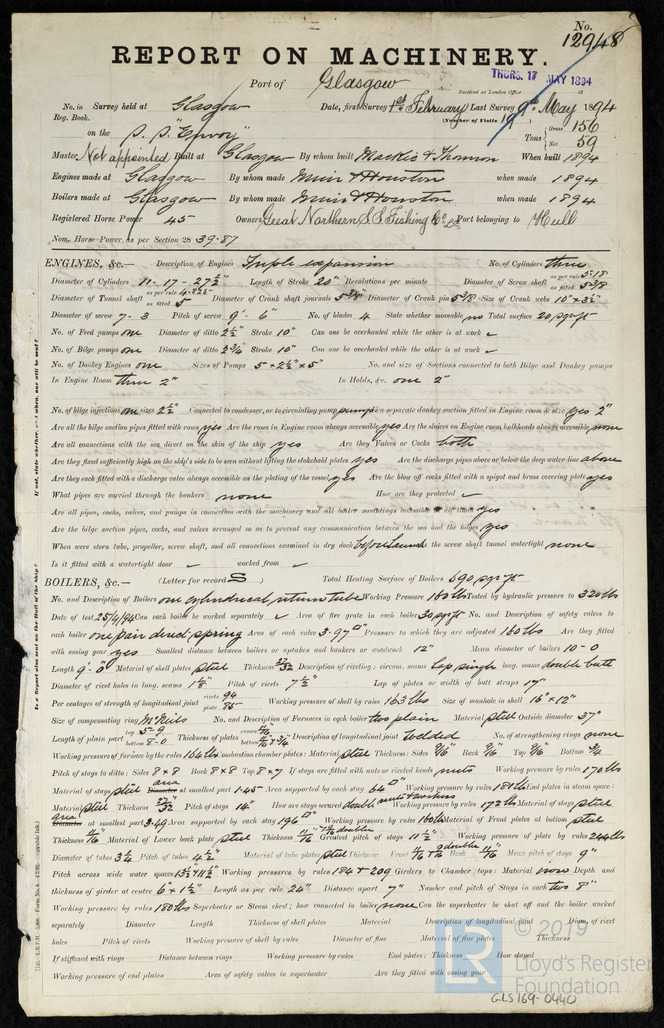 No. 12948
REPORT ON MACHINERY.
Port of Glasgow
THURS. 17 MAY 1894
Received at London Office 18
No. in Survey held at Glasgow Date, first Survey 1st February Last Survey 9th May 1894
Reg. Book. (Number of Visits 19)
on the S. S. "Envoy" Tons { Gross 156 Net 59
Master Not appointed Built at Glasgow By whom built Mackie & Thomson When built 1894
Engines made at Glasgow By whom made Muir & Houston when made 1894
Boilers made at Glasgow By whom made Muir & Houston when made 1894
Registered Horse Power 45 Owners Great Northern S.S. Fishing Co. Ld. Port belonging to Hull
Nom. Horse Power as per Section 28 39.87
ENGINES, &c.— Description of Engines Triple expansion No. of Cylinders three
Diameter of Cylinders 11 - 17 - 27½" Length of Stroke 20" Revolutions per minute Diameter of Screw shaft as per rule 5.18 as fitted 5 3/8
Diameter of Tunnel shaft as per rule 4.825 as fitted 5 Diameter of Crank shaft journals 5 3/8 Diameter of Crank pin 5 3/8 Size of Crank webs 10" × 3½"
Diameter of screw 7 - 3 Pitch of screw 9' - 6" No. of blades 4 State whether moveable no Total surface 20 sq ft
No. of Feed pumps one Diameter of ditto 2½" Stroke 10" Can one be overhauled while the other is at work ✓
No. of Bilge pumps one Diameter of ditto 2¾" Stroke 10" Can one be overhauled while the other is at work ✓
No. of Donkey Engines one Sizes of Pumps 5 × 2½" × 5" No. and size of Suctions connected to both Bilge and Donkey pumps
In Engine Room three 2" In Holds, &c. one 2"
No. of bilge injections one sizes 2½" Connected to condenser, or to circulating pump pump Is a separate donkey suction fitted in Engine room & size yes 2"
Are all the bilge suction pipes fitted with roses yes Are the roses in Engine room always accessible yes Are the sluices on Engine room bulkheads always accessible none
Are all connections with the sea direct on the skin of the ship yes Are they Valves or Cocks both
Are they fixed sufficiently high on the ship's side to be seen without lifting the stokehold plates yes Are the discharge pipes above or below the deep water line above
Are they each fitted with a discharge valve always accessible on the plating of the vessel yes Are the blow off cocks fitted with a spigot and brass covering plate yes
What pipes are carried through the bunkers none How are they protected ✓
Are all pipes, cocks, valves, and pumps in connection with the machinery and all boiler mountings accessible at all times yes
Are the bilge suction pipes, cocks, and valves arranged so as to prevent any communication between the sea and the bilges yes
When were stern tube, propeller, screw shaft, and all connections examined in dry dock before launch Is the screw shaft tunnel watertight none
Is it fitted with a watertight door ✓ worked from ✓
BOILERS, &c.— (Letter for record S) Total Heating Surface of Boilers 690 sq ft
No. and Description of Boilers one cylindrical return tube Working Pressure 160 lbs Tested by hydraulic pressure to 320 lbs
Date of test 25/4/94 Can each boiler be worked separately ✓ Area of fire grate in each boiler 30 sq ft No. and Description of safety valves to
each boiler one pair direct spring Area of each valve 3.97 □" Pressure to which they are adjusted 160 lbs Are they fitted
with easing gear yes Smallest distance between boilers or uptakes and bunkers or woodwork 12" Mean diameter of boilers 10 - 0
Length 9' - 0" Material of shell plates steel Thickness 32 Description of riveting: circum. seams lap single long. seams double butt
Diameter of rivet holes in long. seams 1 1/8" Pitch of rivets 7½" Lap of plates or width of butt straps 17"
Per centages of strength of longitudinal joint rivets. 94 plate 85 Working pressure of shell by rules 163 lbs Size of manhole in shell 16" × 12"
Size of compensating ring McNeils No. and Description of Furnaces in each boiler two plain Material steel Outside diameter 37"
Length of plain part top 5 - 9 bottom 8 - 0 Thickness of plates crown bottom Description of longitudinal joint welded No. of strengthening rings none
Working pressure of furnace by the rules 164 lbs Combustion chamber plates: Material steel Thickness: Sides 9/16" Back 9/16" Top 9/16" Bottom ¾
Pitch of stays to ditto: Sides 8 × 8 Back 8 × 8 Top 8 × 7 If stays are fitted with nuts or riveted heads nuts Working pressure by rules 170 lbs
Material of stays steel area Diameter at smallest part 1.45 Area supported by each stay 64 □" Working pressure by rules 181 lbs End plates in steam space:
Material steel Thickness 32 Pitch of stays 14" How are stays secured double nuts & washers Working pressure by rules 172 lbs Material of stays steel
area Diameter at smallest part 3.49 Area supported by each stay 196 □" Working pressure by rules 160 lbs Material of Front plates at bottom steel
Thickness 11/16" Material of Lower back plate steel Thickness 11/16" & doubler Greatest pitch of stays 11½" Working pressure of plate by rules 244 lbs
Diameter of tubes 3¼ Pitch of tubes 4½" Material of tube plates steel Thickness: Front Back 11/16" Mean pitch of stays 9"
Pitch across wide water spaces 13½" & 11½" Working pressures by rules 184 & 209 Girders to Chamber tops: Material iron Depth and
thickness of girder at centre 6" × 1½" Length as per rule 24" Distance apart 7" Number and pitch of Stays in each two 8"
Working pressure by rules 180 lbs Superheater or Steam chest; how connected to boiler none Can the superheater be shut off and the boiler worked
separately Diameter Length Thickness of shell plates Material Description of longitudinal joint Diam. of rivet
holes Pitch of rivets Working pressure of shell by rules Diameter of flue Material of flue plates Thickness
If stiffened with rings Distance between rings Working pressure by rules End plates: Thickness How stayed
Working pressure of end plates Area of safety valves to superheater Are they fitted with easing gear
If not, state whether, and when, one will be sent?
Is a Report also sent on the Hull of the Ship?
© 2019
Lloyd's Register
Foundation
GLS169-0440